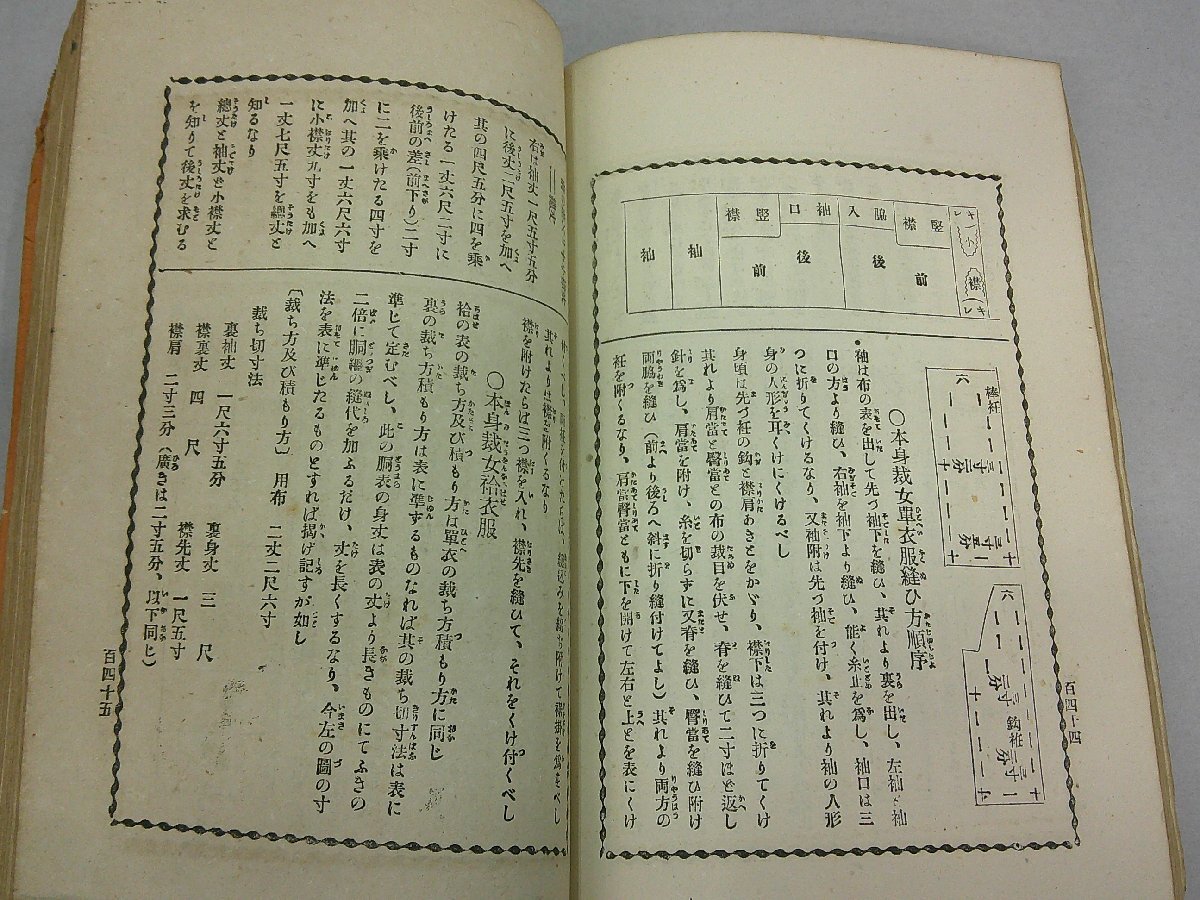 百四十四
棒衽
鈎衽
小
襟
キレ
竪襟
前
脇入
後
袖口
後
竪襟
前
袖
袖
〇本身裁女單衣服縫ひ方順序
袖は布の表を出して先づ袖下を縫ひ、其れより裏を出し、左袖は袖
口の方より縫ひ、右袖を袖下より縫ひ、能く糸止を爲し、袖口は三
つに折りてくけるなり、又袖附は先づ袖を付け、其れより袖の人形
身の人形を耳くけにくけるべし
身頃は先づ衽の鈎と襟肩あきとをかゞり、襟下は三つに折りてくけ
其れより肩當と臀當との布の裁目を伏せ、脊を縫ひて二寸ほど返し
針を爲し、肩當を附け、糸を切らずに又脊を縫ひ、臀當を縫ひ附け
兩脇を縫ひ（前より後ろへ斜に折り縫付けてよし）其れより兩方の
衽を附くるなり、肩當臀當ともに下を開けて左右と上とを表にくけ
右は袖丈一尺五寸五分
に後丈二尺五寸を加へ
其の四尺五分に四を乘
けたる一丈六尺二寸に
後前の差（前下り）二寸
に二を乘けたる四寸を
加へ其の一丈六尺六寸
に小襟丈九寸をも加へ
一丈七尺五寸を總丈と
知るなり
總丈と袖丈と小襟丈と
を知りて後丈を求むる
其れより襟を附くるなり
襟を附けたらば三つ襟を入れ、襟先を縫ひて、それをくけ付くべし
〇本身裁女袷衣服
袷の表の裁ち方及び積もり方は單衣の裁ち方積もり方に同じ
裏の裁ち方積もり方は表に準ずるものなれば其の裁ち切寸法は表に
準じて定むべし、此の胴表の身丈は表の丈より長きものにてふきの
二倍に胴繼の縫代を加ふるだけ、丈を長くするなり、今左の圖の寸
法を表に準じたるものとすれば揭げ記すが如し
〔裁ち方及び積もり方〕 用布 二丈二尺六寸
裁ち切寸法
裏袖丈 一尺六寸五分 裏身丈 三尺
襟裏丈 四尺 襟先丈 一尺五寸
襟肩 二寸三分（廣きは二寸五分、以下同じ）
百四十五